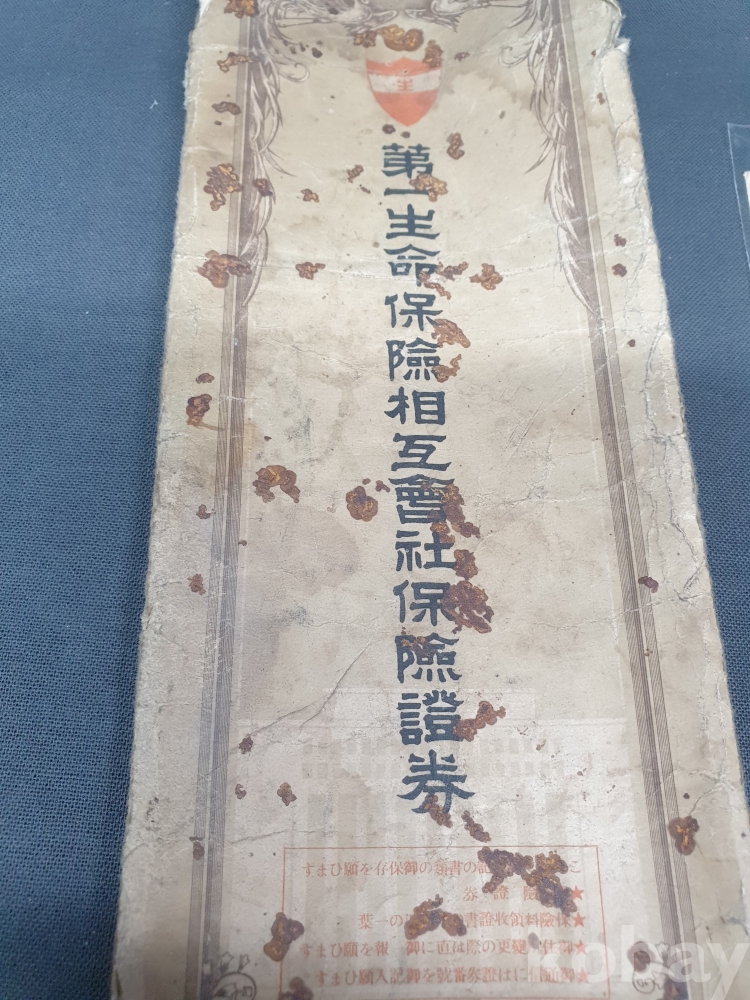 生
第一生命保險相互會社保險證券
こ 記の書類の御保存を願ひます
★ 險證券
★保險料領收證書 の一葉
★御住 變更の際は直に御 報を願ひます
★御通信には證券番號を御記入願ひます
kobay